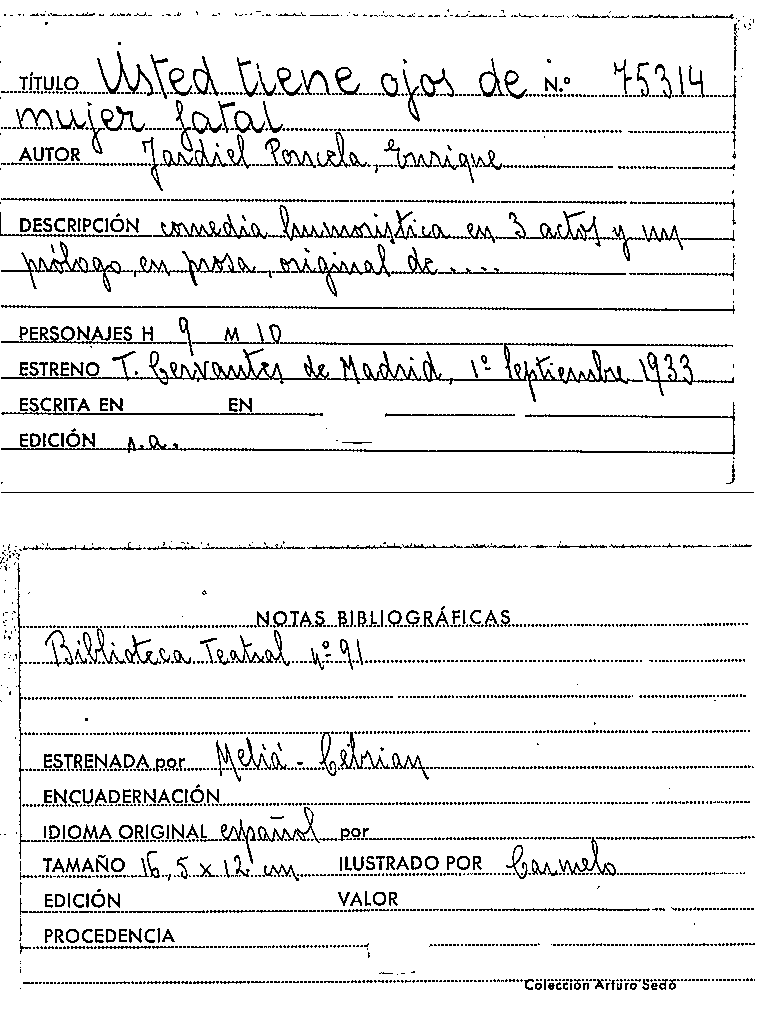 TÍTULO Usted tiene ojos de N.º 75314
mujer fatal
AUTOR Jardiel Poncela, Enrique
DESCRIPCIÓN comedia humoristica en 3 actos y un
prólogo, en prosa, original de.....
PERSONAJES H 9 M 10
ESTRENO T. Cervantes de Madrid, 1º Septiembre 1933
ESCRITA EN EN
EDICIÓN s.a.
NOTAS BIBLIOGRÁFICAS
Biblioteca Teatral nº 91
ESTRENADA por Meliá - Cebrian
ENCUADERNACIÓN
IDIOMA ORIGINAL español por
TAMAÑO 16,5 x 12 cm ILUSTRADO POR Carmelo
EDICIÓN VALOR
PROCEDENCIA
Colección Arturo Sedó